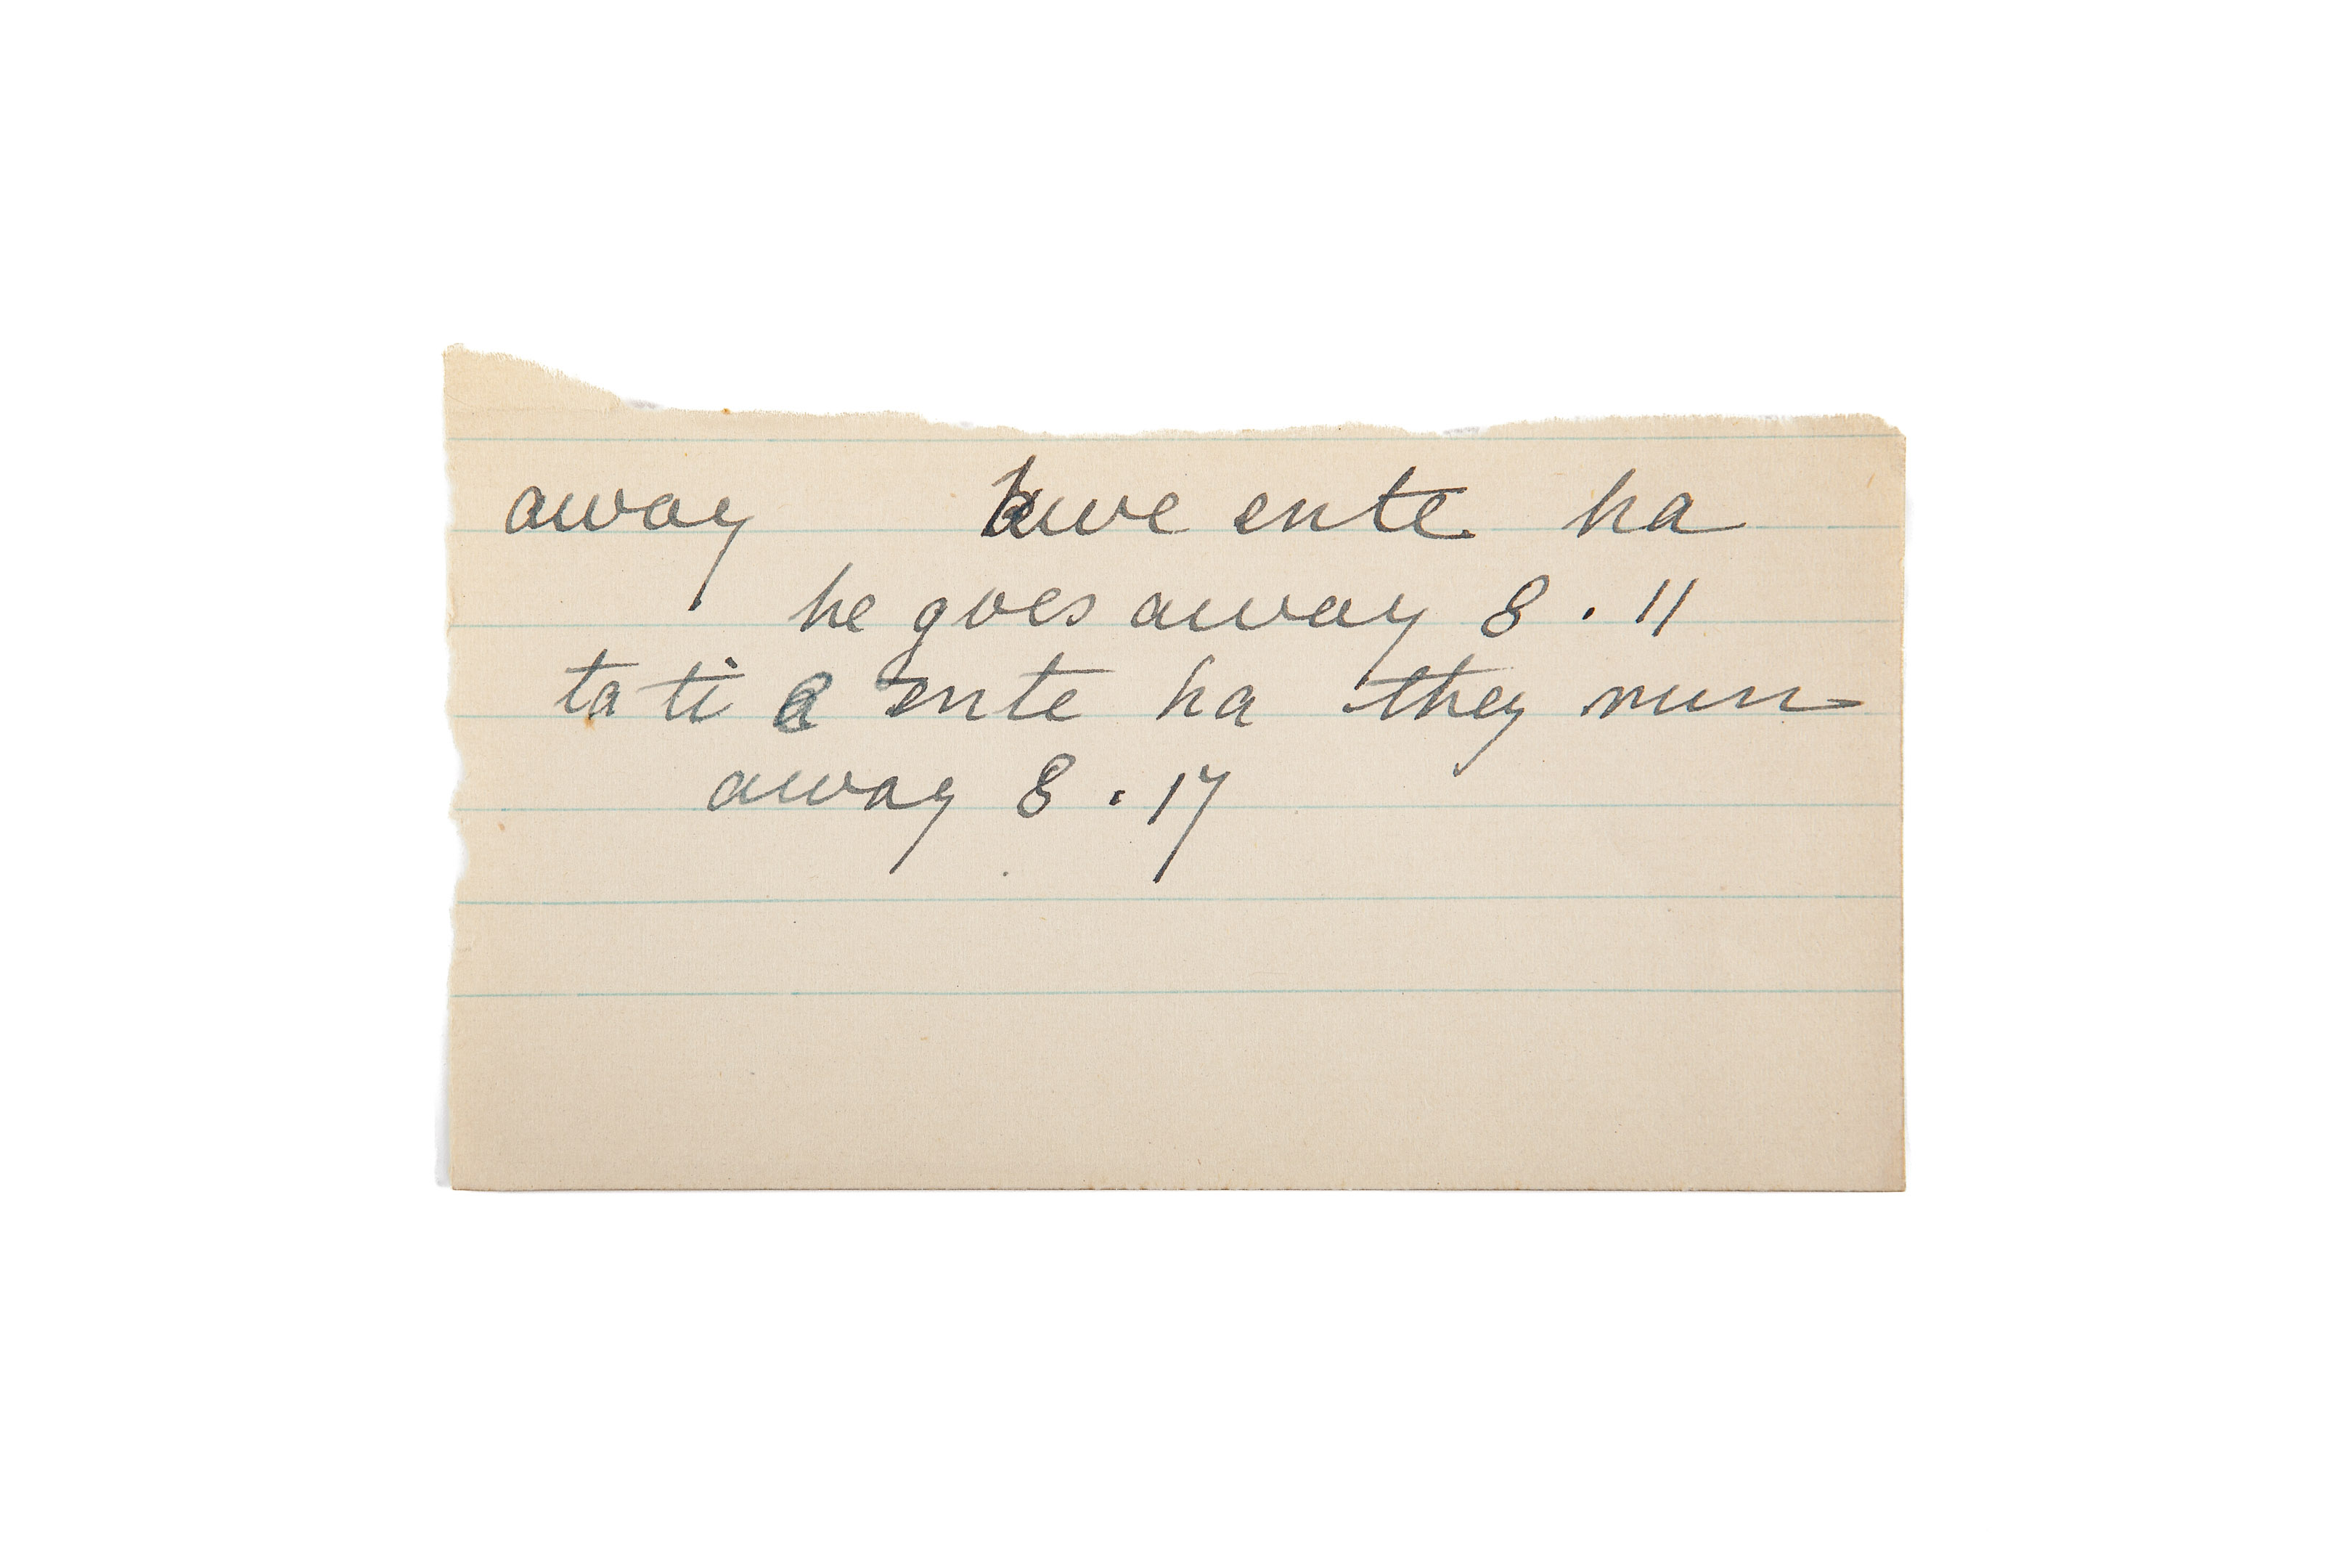 away huve ente ha
he goes away 8 . 11
ta ti e ente ha they run
away 8 . 17